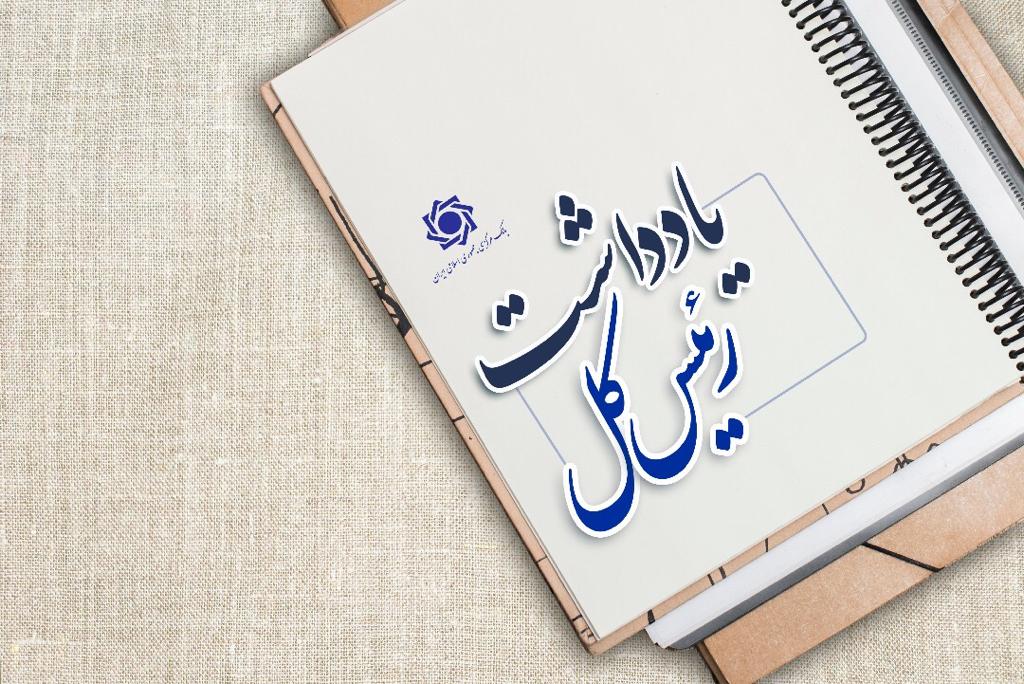 بانک مرکزی جمهوری اسلامی ایران
یادداشت
رئیس کل